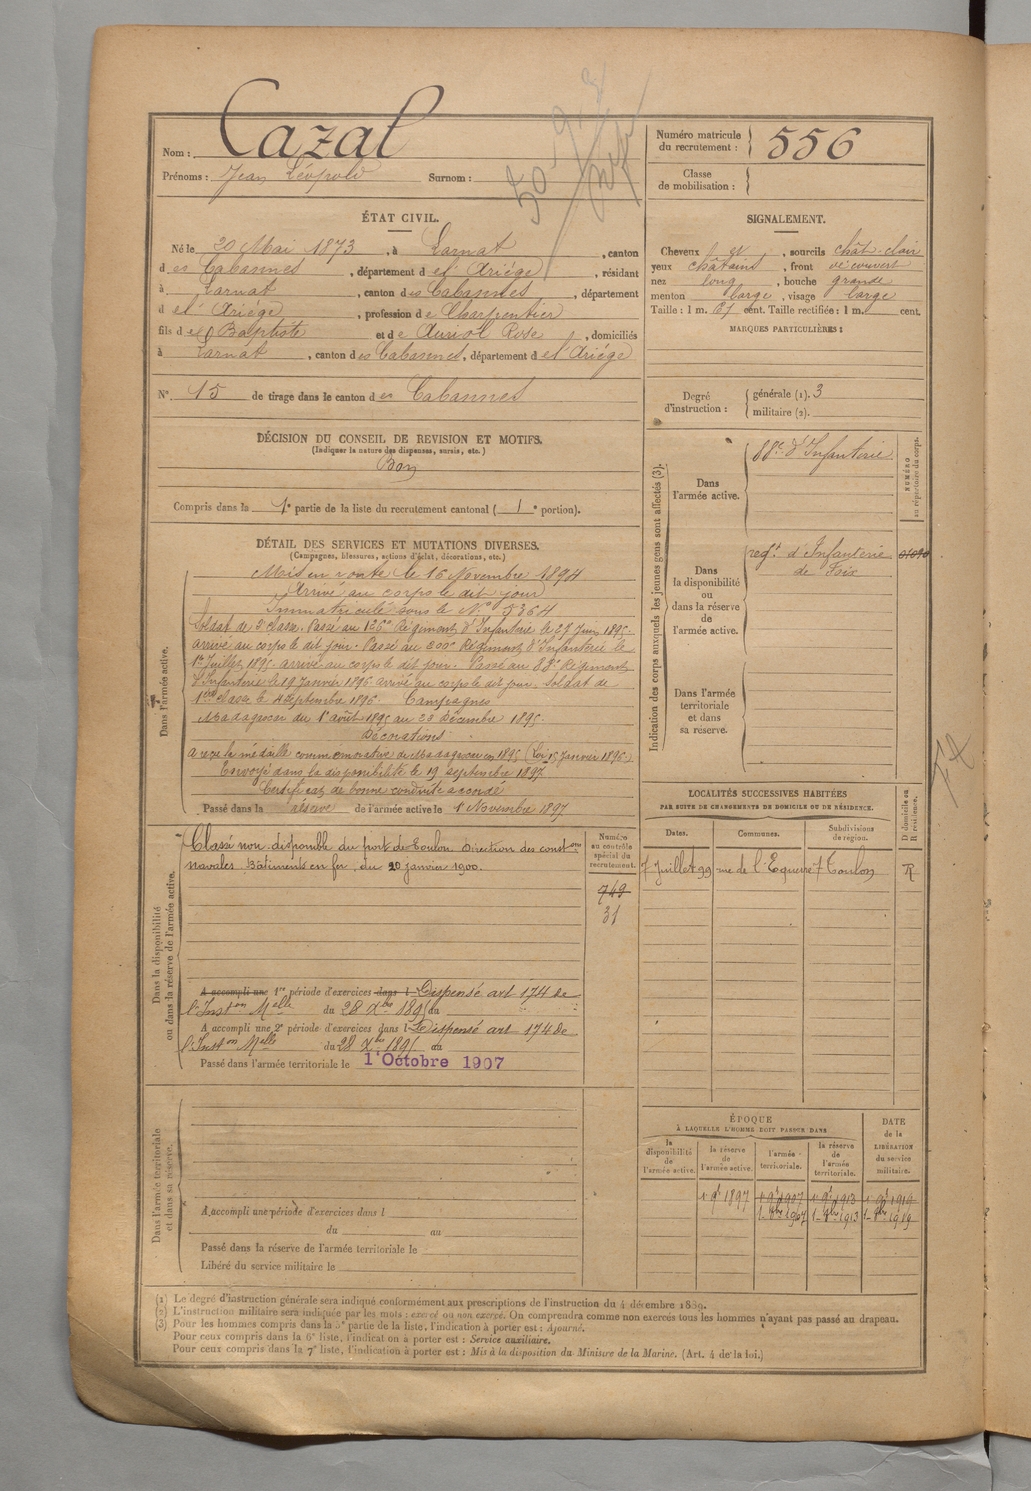 Nom : Cazal
Prénoms : Jean Léopold Surnom :
Numéro matricule du recrutement : 556
Classe de mobilisation :
ÉTAT CIVIL.
Né le 20 Mai 1873, à Larnat, canton
d es Cabannes, département d e l'Ariége, résidant
à Larnat, canton d es Cabannes, département
d e l'Ariége, profession d e Charpentier
fils d e Baptiste et d e Auriol Rose, domiciliés
à Larnat, canton d es Cabannes, département d e l'Ariége
N° 15 de tirage dans le canton d es Cabannes
SIGNALEMENT.
Cheveux et, sourcils chât-clair
yeux châtains, front découvert
nez long, bouche grande
menton large, visage large
Taille : 1 m. cent. Taille rectifiée : 1 m. cent.
MARQUES PARTICULIÈRES :
Degré d'instruction : générale (1). 3
militaire (2).
DÉCISION DU CONSEIL DE REVISION ET MOTIFS.
(Indiquer la nature des dispenses, sursis, etc.)
Bon
Compris dans la 1e partie de la liste du recrutement cantonal ( 1e portion).
DÉTAIL DES SERVICES ET MUTATIONS DIVERSES.
(Campagnes, blessures, actions d'éclat, décorations, etc.)
Dans l'armée active.
Mis en route le 16 Novembre 1894
Arrivé au corps le dit jour
Immatriculé sous le N° 5364
Soldat de 2e classe. Passé au 126e Régiment d'Infanterie le 27 Juin 1895.
arrivé au corps le dit jour. Passé au 200e Régiment d'Infanterie le
1er Juillet 1895. arrivé au corps le dit jour. Passé au 88e Régiment
d'Infanterie le 19 Janvier 1896 arrivé au corps le dit jour. Soldat de
1ère classe le 4 septembre 1896. Campagnes
Madagascar du 1er août 1895 au 23 Décembre 1895.
Décorations
a reçu la médaille commémorative de Madagascar en 1895 (Loi 15 Janvier 1896.)
Envoyé dans la disponibilité le 19 septembre 1897
Certificat de bonne conduite accordé
Passé dans la réserve de l'armée active le 1er Novembre 1897
Indication des corps auxquels les jeunes gens sont affectés (3).
NUMÉRO au répertoire du corps.
Dans l'armée active. 88e d'Infanterie
Dans la disponibilité ou dans la réserve de l'armée active. régt d'Infanterie
de Foix
Dans l'armée territoriale et dans sa réserve.
LOCALITÉS SUCCESSIVES HABITÉES
PAR SUITE DE CHANGEMENTS DE DOMICILE OU DE RÉSIDENCE.
Dates. Communes. Subdivisions de région. D domicile ou R résidence.
7 Juillet 99 rue de l' 7 Toulon R
Dans la disponibilité ou dans la réserve de l'armée active.
Numéro au contrôle spécial du recrutement.
Classé non-disponible du port de Toulon. Direction des constons
navales. Bâtiments en fer, du 20 janvier 1900.
749
31
A accompli une 1re période d'exercices dans l Dispensé art 174 de
l'Inston Melle du 28 Xbre 1895 du
A accompli une 2e période d'exercices dans l Dispensé art 174 de
l'Inston Melle du 28 Xbre 1895 au
Passé dans l'armée territoriale le 1er Octobre 1907
ÉPOQUE
À LAQUELLE L'HOMME DOIT PASSER DANS
la disponibilité de l'armée active.
la réserve de l'armée active.
l'armée territoriale.
la réserve de l'armée territoriale.
DATE de la LIBÉRATION du service militaire.
1 9bre 1897 1 9bre 1907 1 9bre 1913 1 9bre 1919
1-8bre 1907 1-8bre 1913 1-8bre 1919
Dans l'armée territoriale et dans sa réserve.
A accompli une période d'exercices dans l
du au
Passé dans la réserve de l'armée territoriale le
Libéré du service militaire le
(1) Le degré d'instruction générale sera indiqué conformément aux prescriptions de l'instruction du 4 décembre 1889.
(2) L'instruction militaire sera indiquée par les mots : exercé ou non exercé. On comprendra comme non exercés tous les hommes n'ayant pas passé au drapeau.
(3) Pour les hommes compris dans la 5e partie de la liste, l'indication à porter est : Ajourné.
Pour ceux compris dans la 6e liste, l'indication à porter est : Service auxiliaire.
Pour ceux compris dans la 7e liste, l'indication à porter est : Mis à la disposition du Ministre de la Marine. (Art. 4 de la loi.)